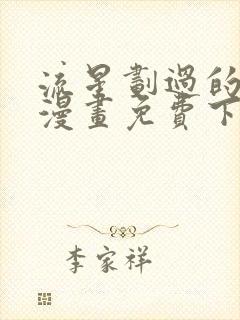 流星劃過的
漫畫免費下
李家祥